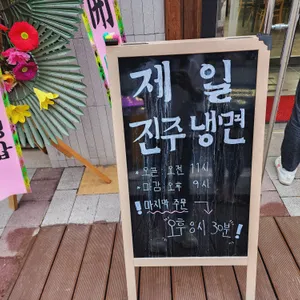 제 일
진주냉면
• 오픈 오전 11시
• 마감 오후 9시
! 마지막 주문
오후 8시 30분!